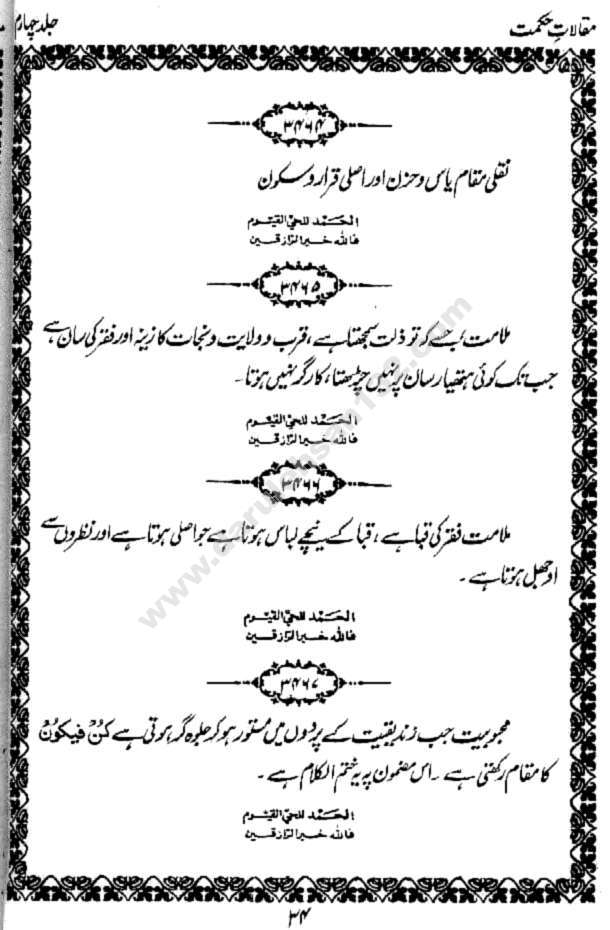 مقالاتِ حکمت
جلد چہارم
۳۴۶۴
نقلی مقام یاس و حزن اور اصلی قرار و سکون
الحَمد للحیّ القیّوم
فاللہ خیر الرّازقین
۳۴۶۵
ملامت، جسے کہ تو ذلت سمجھتا ہے، قرب و ولایت و نجات کا زینہ اور فقر کی سان ہے
جب تک کوئی ہتھیار سان پر نہیں چڑھتا، کارگر نہیں ہوتا۔
الحَمد للحیّ القیّوم
فاللہ خیر الرّازقین
۳۴۶۶
ملامت فقر کی قبا ہے، قبا کے نیچے لباس ہوتا ہے جو اصلی ہوتا ہے اور نظروں سے
اوجھل ہوتا ہے۔
الحَمد للحیّ القیّوم
فاللہ خیر الرّازقین
۳۴۶۷
محبوبیت جب زندیقیت کے پردوں میں مستور ہو کر جلوہ گر ہوتی ہے کُنْ فَیکُوْنُ
کا مقام رکھتی ہے۔ اس مضمون پہ یہ ختم الکلام ہے۔
الحَمد للحیّ القیّوم
فاللہ خیر الرّازقین
۳۴